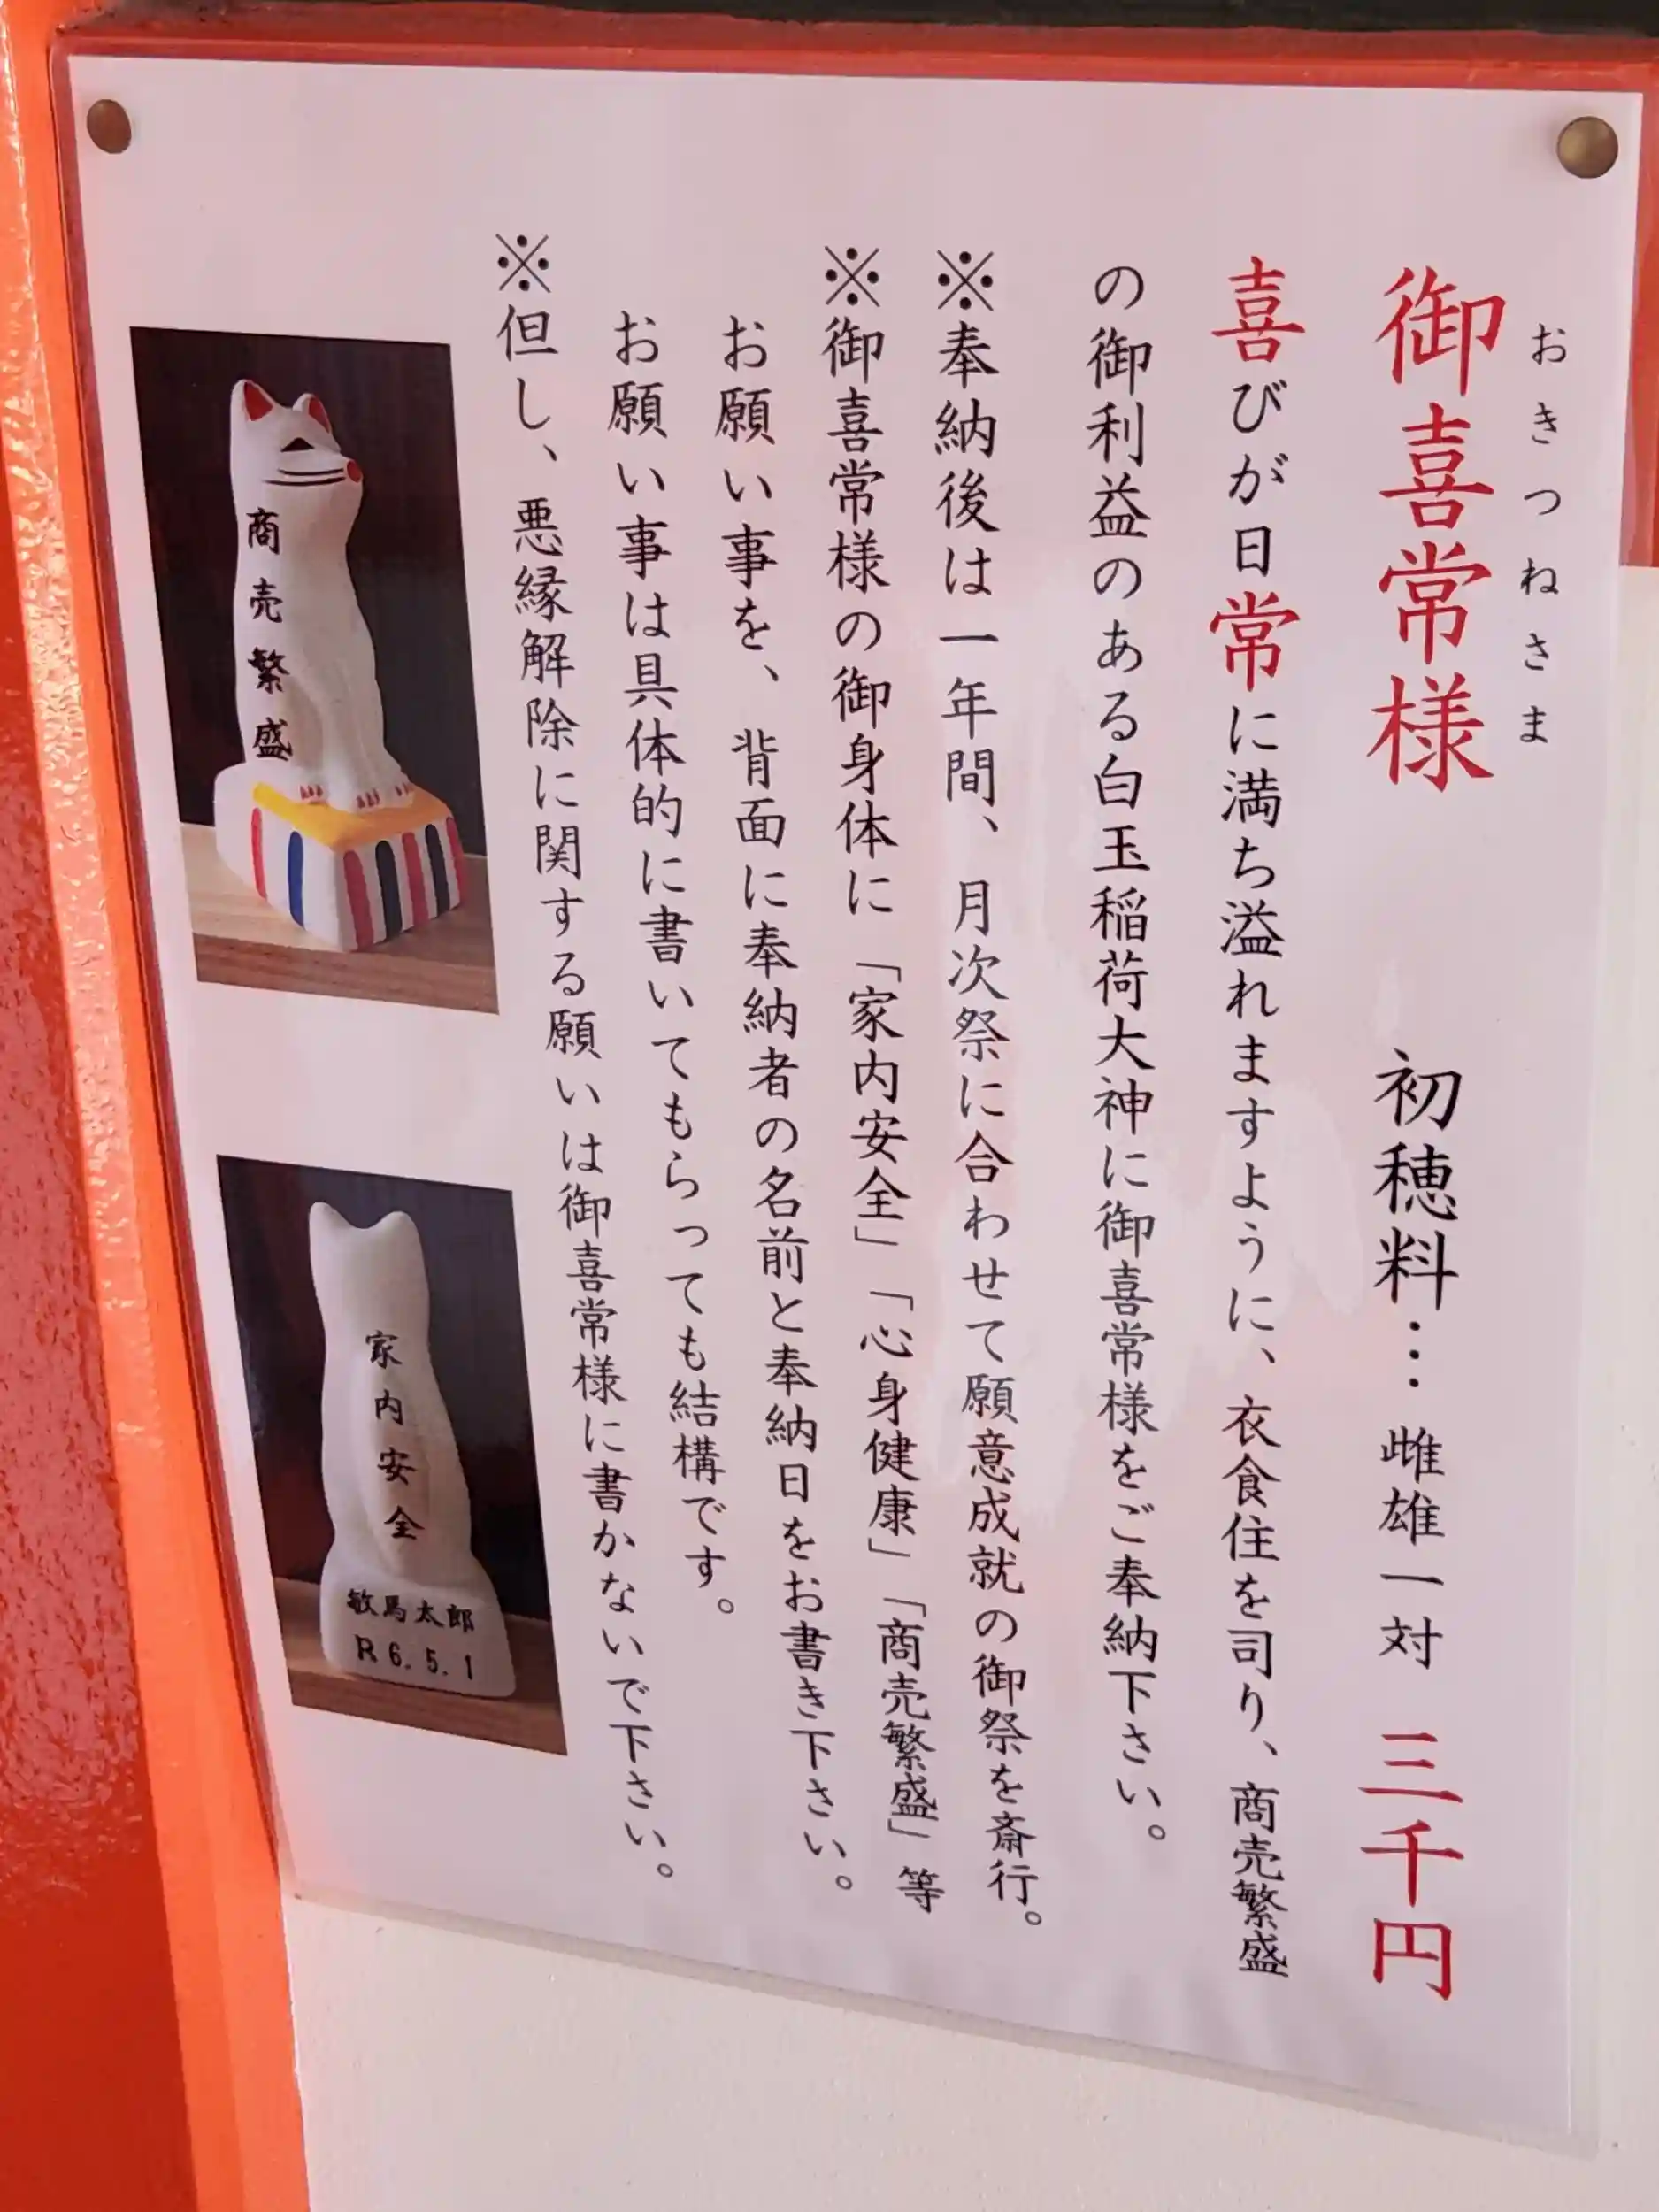 おきつねさま
御喜常様 初穂料…雌雄一対 三千円
喜びが日常に満ち溢れますように、衣食住を司り、商売繁盛
の御利益のある白玉稲荷大神に御喜常様をご奉納下さい。
※奉納後は一年間、月次祭に合わせて願意成就の御祭を斎行。
※御喜常様の御身体に「家内安全」「心身健康」「商売繁盛」等
お願い事を、背面に奉納者の名前と奉納日をお書き下さい。
お願い事は具体的に書いてもらっても結構です。
※但し、悪縁解除に関する願いは御喜常様に書かないで下さい。
商売繁盛
家内安全
敏馬太郎
R6.5.1